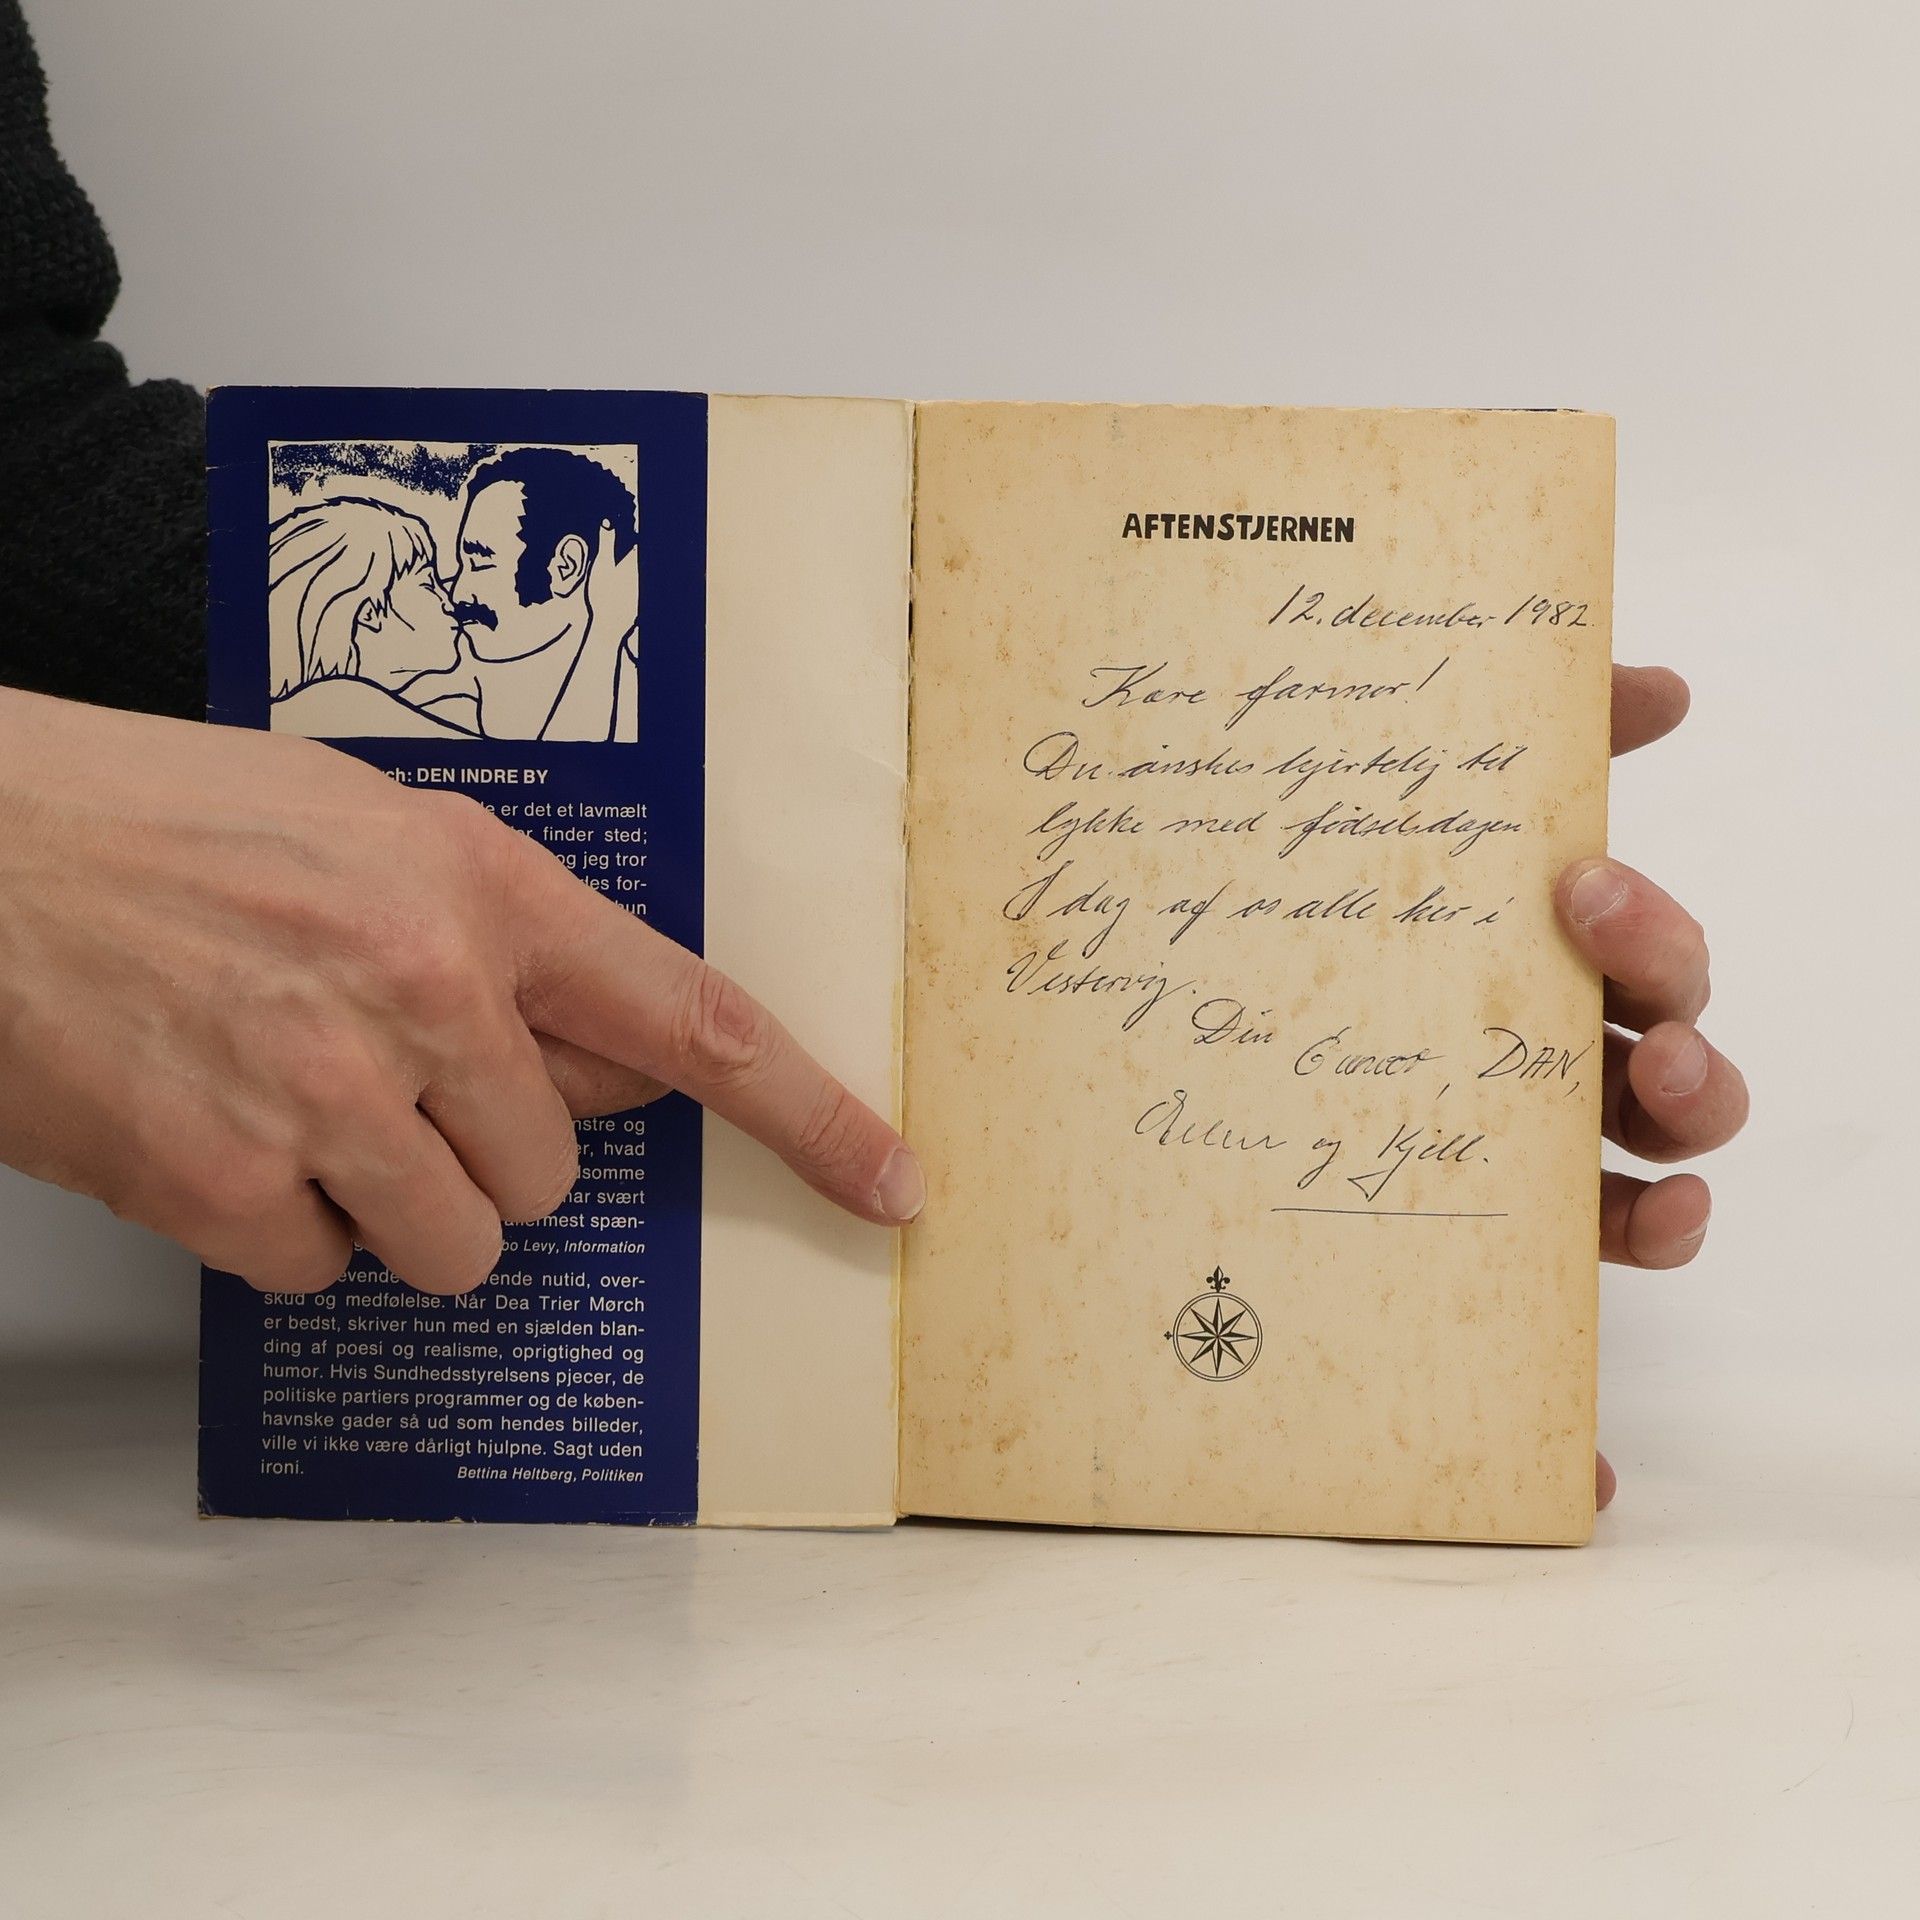 ch: DEN INDRE BY
er det et lavmælt
finder sted;
og jeg tror
des for-
hun
nstre og
er, hvad
dsomme
har svært
allermest spæn-
bo Levy, Information
evende vende nutid, over-
skud og medfølelse. Når Dea Trier Mørch
er bedst, skriver hun med en sjælden blan-
ding af poesi og realisme, oprigtighed og
humor. Hvis Sundhedsstyrelsens pjecer, de
politiske partiers programmer og de køben-
havnske gader så ud som hendes billeder,
ville vi ikke være dårligt hjulpne. Sagt uden
ironi.
Bettina Heltberg, Politiken
AFTENSTJERNEN
12. december 1982.
Kære farmor!
Du ønskes hjertelig til
lykke med fødselsdagen
I dag af os alle her i
Vestervig.
Din
DAN,
og Kjell.